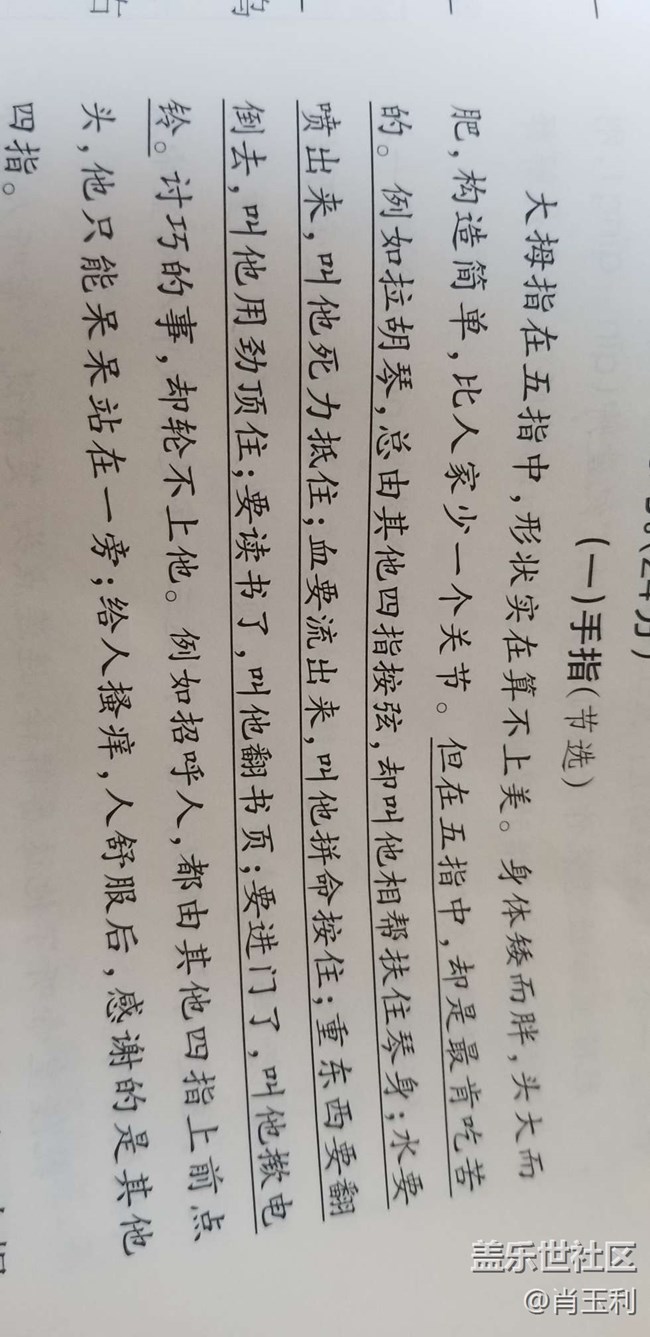 (一)手指(节选)
大拇指在五指中,形状实在算不上美。身体矮而胖,头大而
肥,构造简单,比人家少一个关节。但在五指中,却是最肯吃苦
的。例如拉胡琴,总由其他四指按弦,却叫他相帮扶住琴身;水要
喷出来,叫他死力抵住;血要流出来,叫他拼命按住;重东西要翻
倒去,叫他用劲顶住;要读书了,叫他翻书页;要进门了,叫他揿电
铃。讨巧的事,却轮不上他。例如招呼人,都由其他四指上前点
头,他只能呆呆站在一旁;给人搔痒,人舒服后,感谢的是其他
四指。
盖乐世社区
@肖玉利